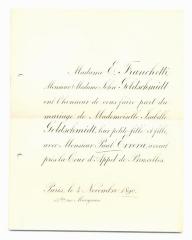 Madame E. Franchetti,
Monsieur Madame John Goldschmidt
ont l'honneur de vous faire part du
mariage de Mademoiselle Isabelle
Goldschmidt, leur petite-fille et fille,
avec Monsieur Paul Errera, avocat
près la Cour d'Appel de Bruxelles.
Paris, le 4 Novembre 1890.